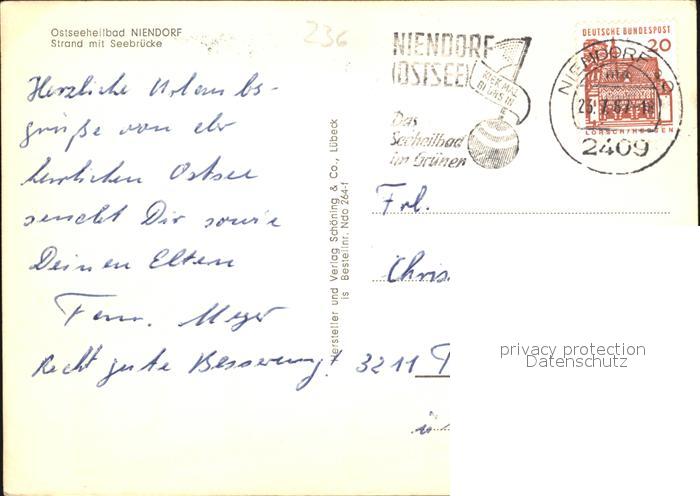 Ostseeheilbad NIENDORF
Strand mit Seebrücke
236
NIENDORF
(OSTSEE)
Das
Seeheilbad
im Grünen
DEUTSCHE BUNDESPOST
20
LORSCH/HESSEN
NIENDORF
2409
Herzliche Urlaubs-
grüße von der
herrlichen Ostsee
sendet Dir sowie
Deinen Eltern
Fam. Meyer
Recht gute Besserung!
Hersteller und Verlag Schöning & Co., Lübeck
is Bestellnr. Ndo 264-f
Frl.
Chris
3211
ü
privacy protection
Datenschutz